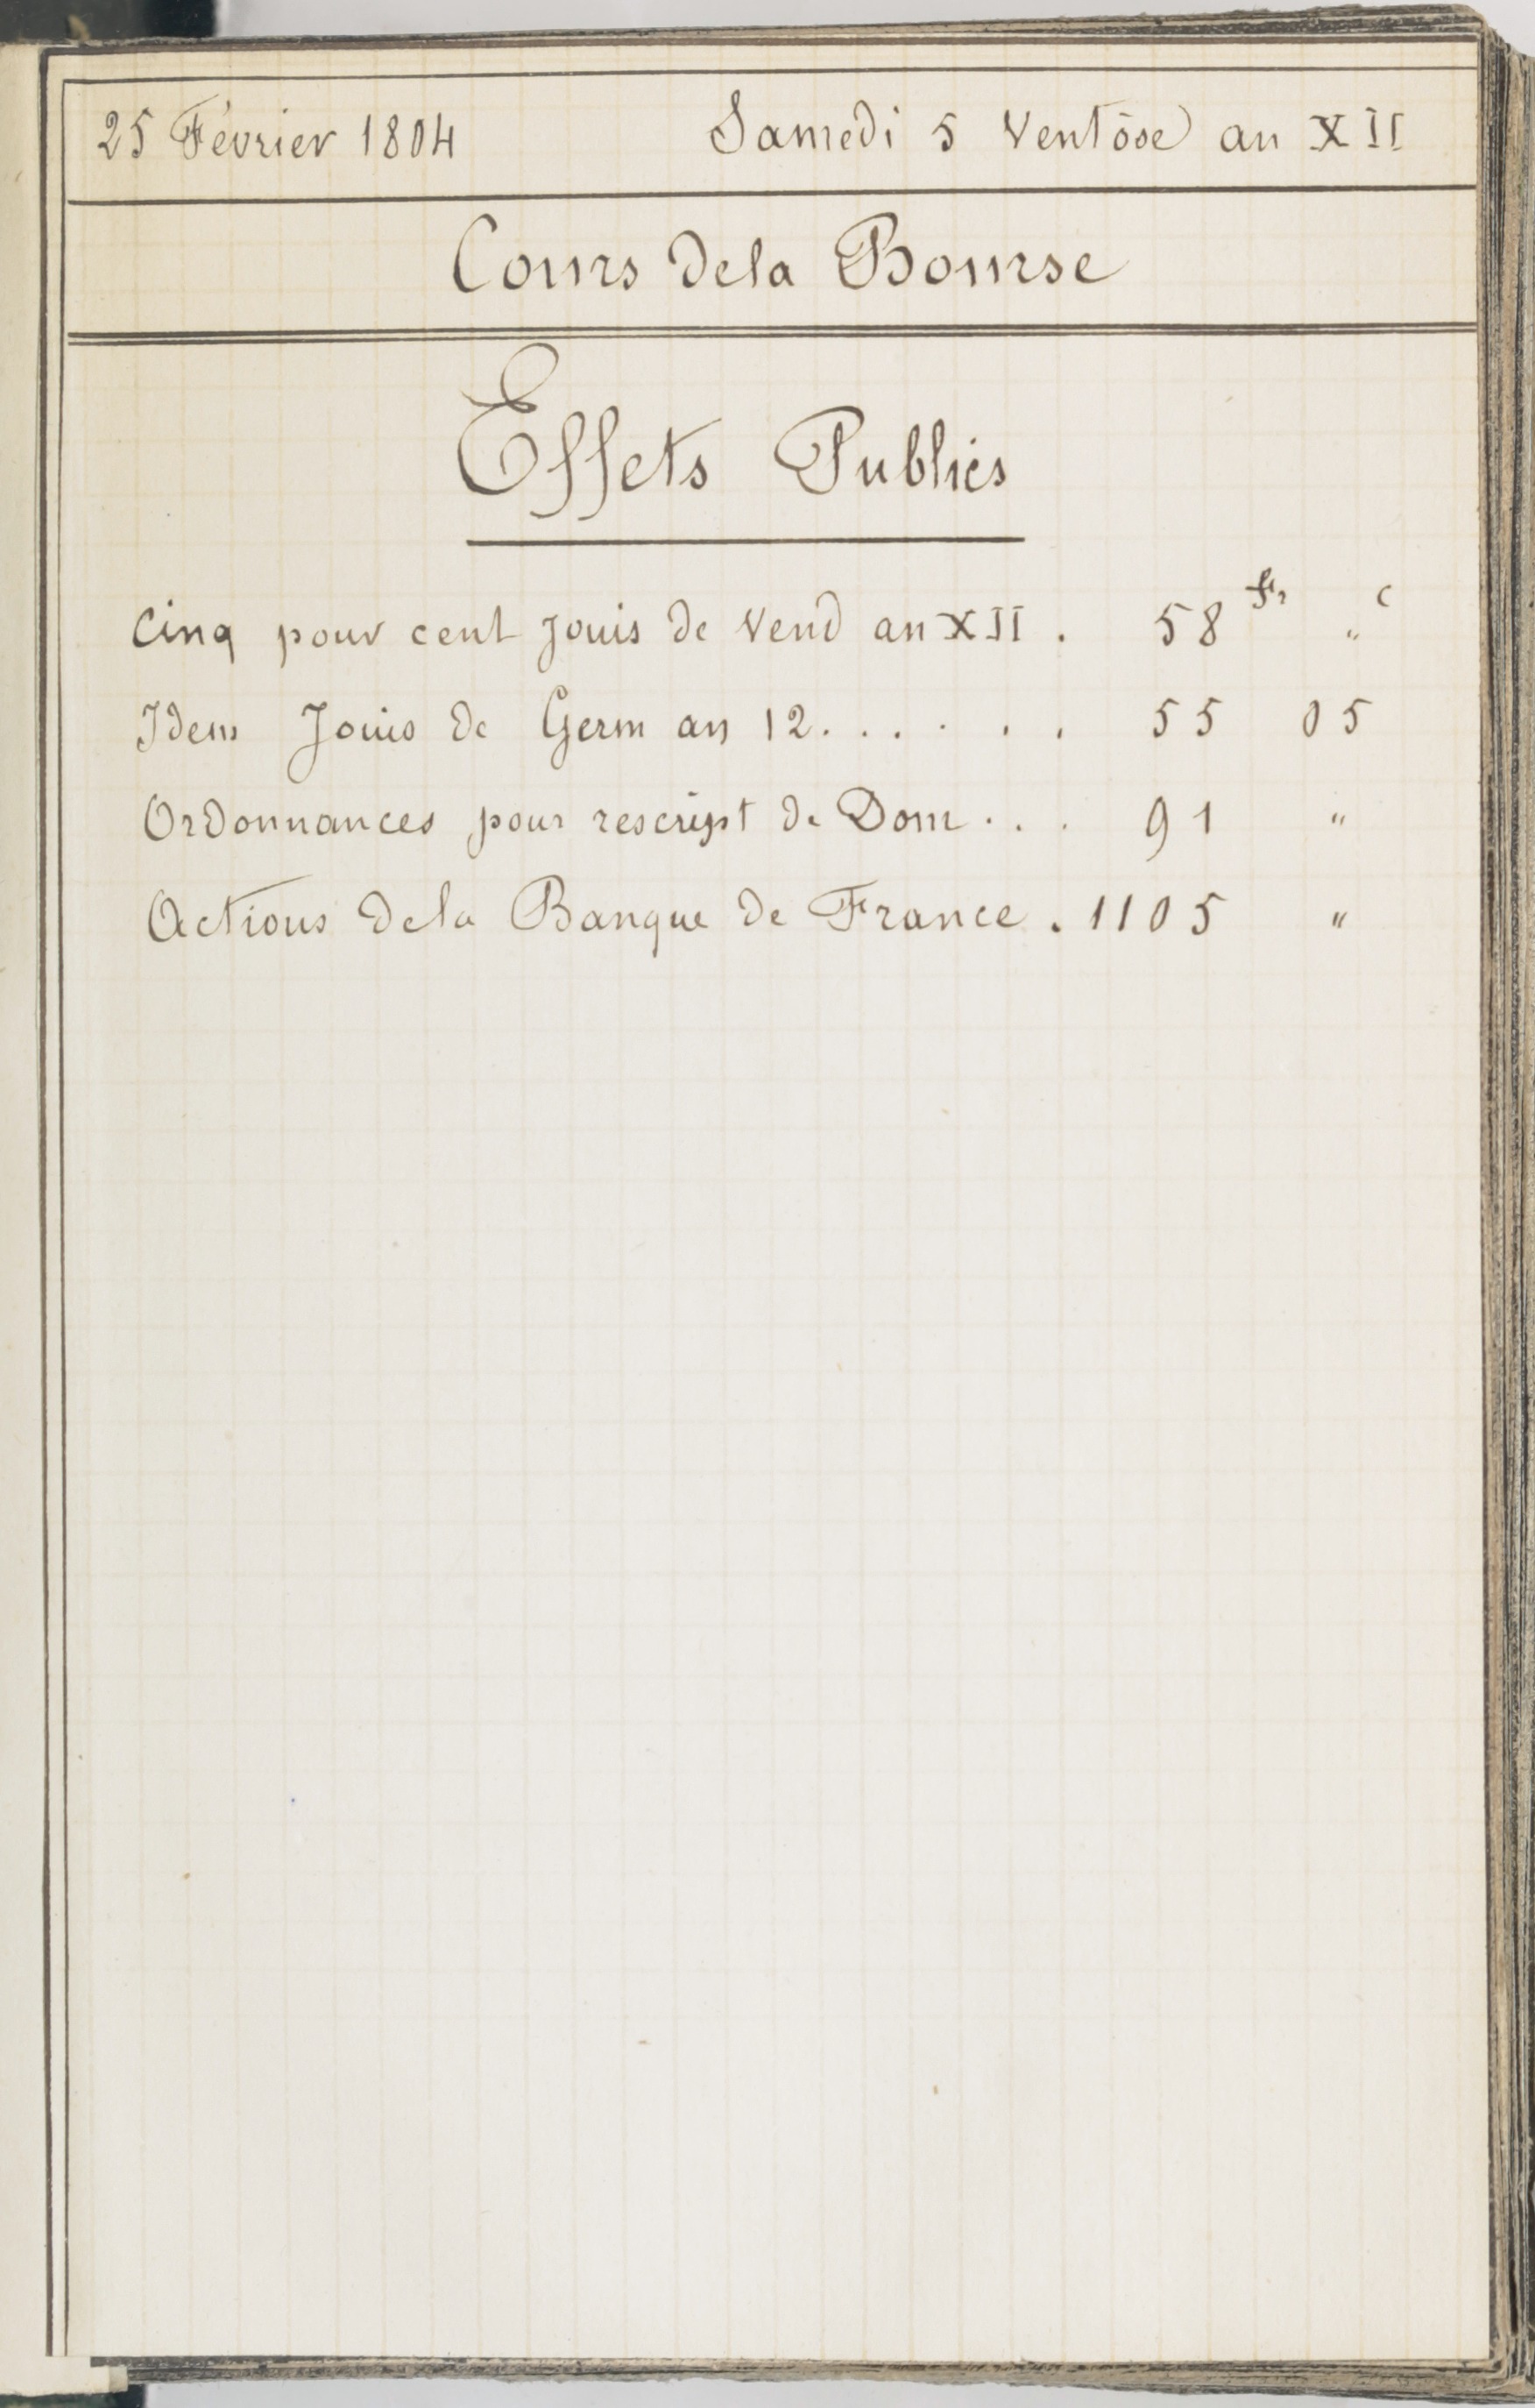 25 Février 1804 Samedi 5 Ventôse an XII
Cours de la Bourse
Effets Publics
Cinq pour cent Jouis de Vend an XII . 58 fr " c
Idem Jouis de Germ an 12 . . . . . . 55 05
Ordonnances pour rescript de Dom . . . 91 "
Actions de la Banque de France . 1105 "